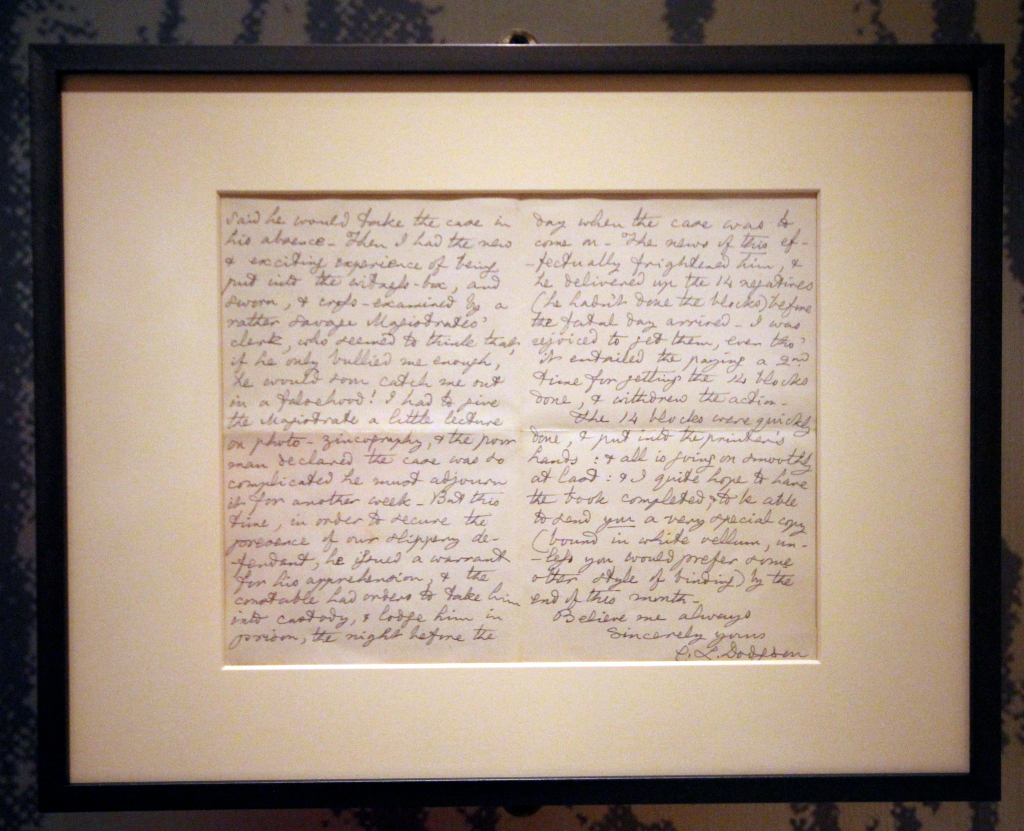 said he would take the case in
his absence - Then I had the new
& exciting experience of being
put into the witness-box, and
sworn, & cross-examined by a
rather savage Magistrates'
clerk, who seemed to think that,
if he only bullied me enough,
he would soon catch me out
in a falsehood! I had to give
the Magistrate a little lecture
on photo-zincography, & the poor
man declared the case was so
complicated he must adjourn
it for another week - But this
time, in order to secure the
presence of our slippery de-
-fendant, he issued a warrant
for his apprehension, & the
constable had orders to take him
into custody, & lodge him in
prison, the night before the
day when the case was to
come on - The news of this ef-
-fectually frightened him, &
he delivered up the 14 negatives
(he hadn't done the blocks) before
the fatal day arrived - I was
rejoiced to get them, even tho'
it entailed the paying a 2nd
time for getting the 14 blocks
done, & withdrew the action -
The 14 blocks were quickly
done, & put into the printer's
hands: & all is going on smoothly
at last: & I quite hope to have
the book completed, & to be able
to send you a very special copy
(bound in white vellum, un-
-less you would prefer some
other style of binding) by the
end of this month -
Believe me always
Sincerely yours
C. L. Dodgson